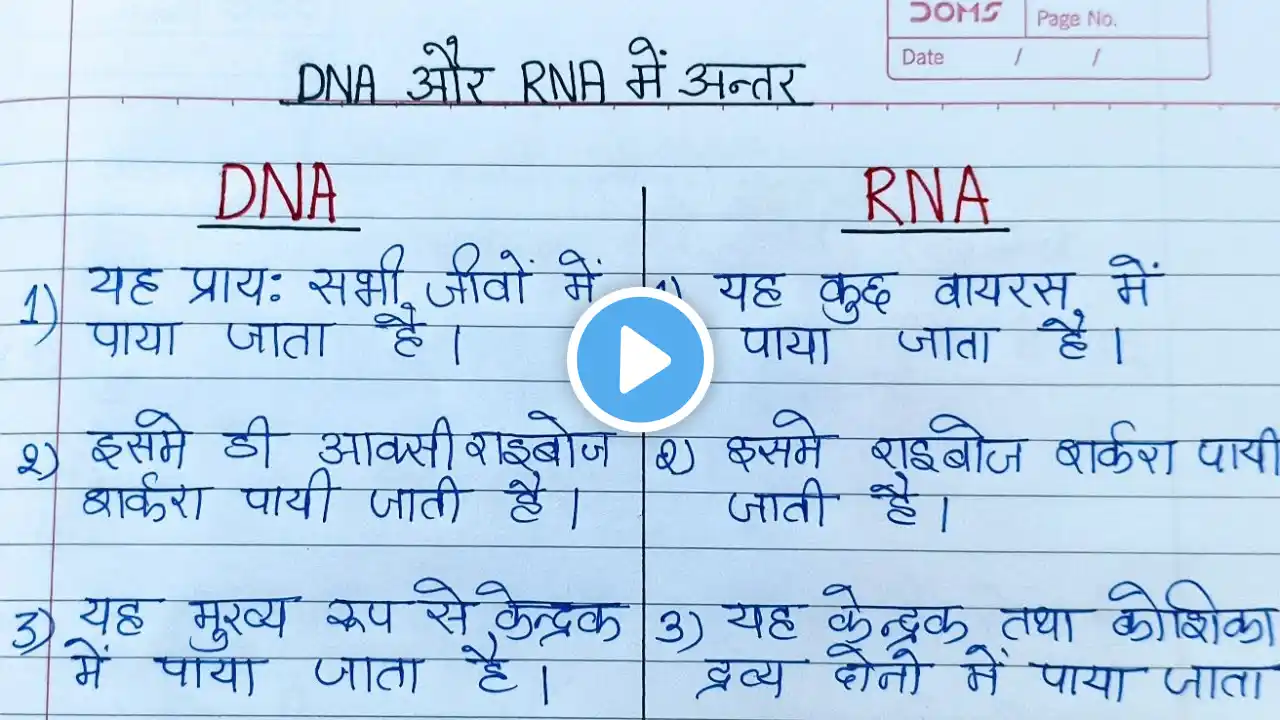 DOMS
Page No.
Date / /
DNA और RNA में अन्तर
DNA
1) यह प्राय: सभी जीवों में
पाया जाता है।
2) इसमे डी आक्सी राइबोज
शर्करा पायी जाती है।
3) यह मुख्य रूप से केन्द्रक
में पाया जाता है।
RNA
1) यह कुछ वायरस में
पाया जाता है।
2) इसमे राइबोज शर्करा पायी
जाती है।
3) यह केन्द्रक तथा कोशिका
द्रव्य दोनो में पाया जाता